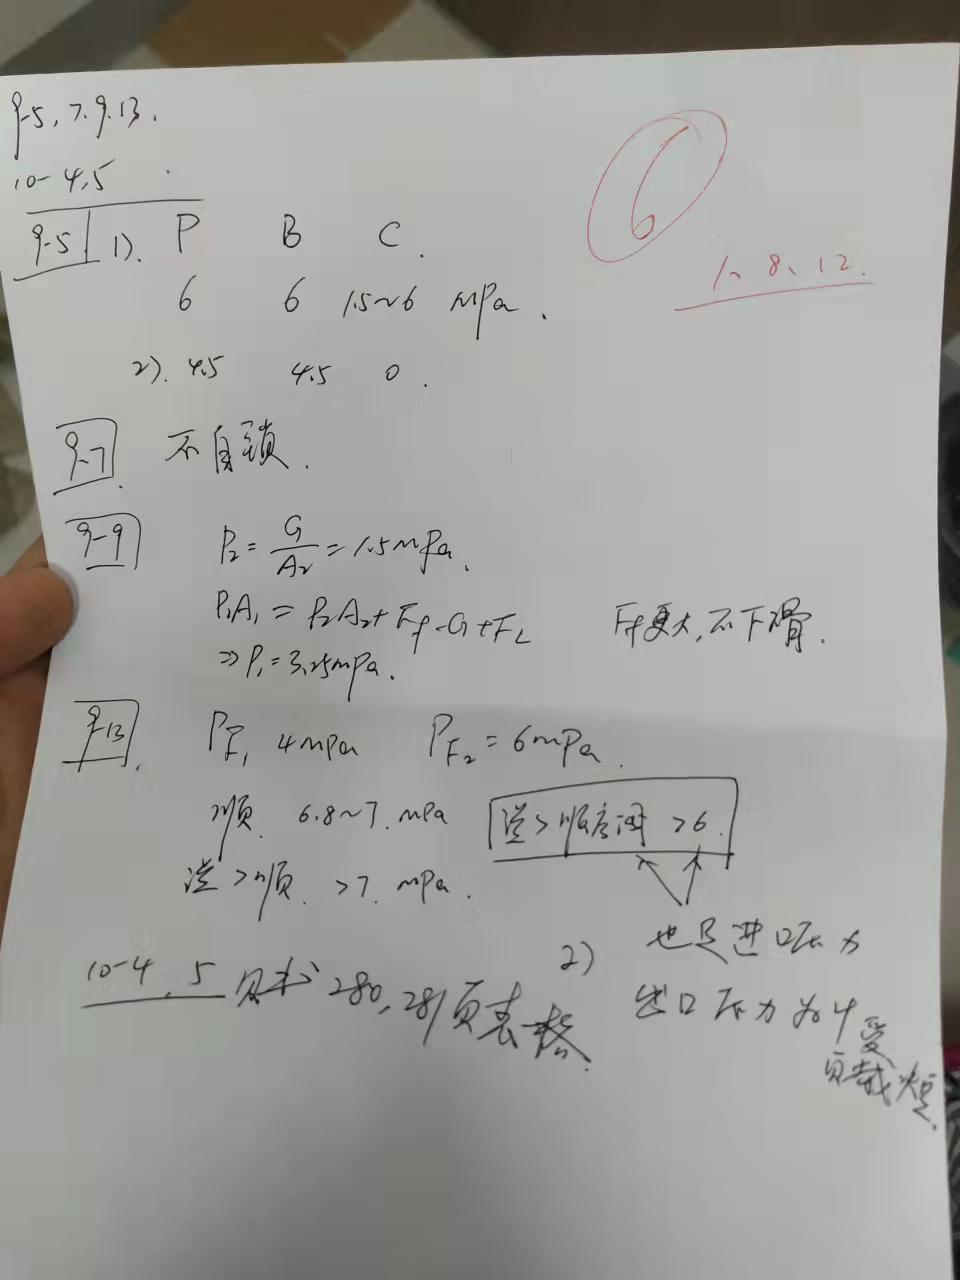 9-5, 7. 9. 13.
10-4,5
6
1、8、12.
9-5 1). P B C.
6 6 1.5~6 MPa.
2). 4.5 4.5 0.
9-7. 不自锁.
9-9 P₂=G/A₂=1.5mPa.
P₁A₁=P₂A₂+Ff-G+FL Ff更大,不下滑.
⇒P₁=3.25mPa.
9-13. PF₁ 4mpa PF₂=6mPa.
顺. 6.8~7. mPa 溢>顺序阀>6.
溢>顺. >7. mPa.
2) 也是进口压力
10-4, 5 见书 280, 281页表格.
出口压力为4受
负载